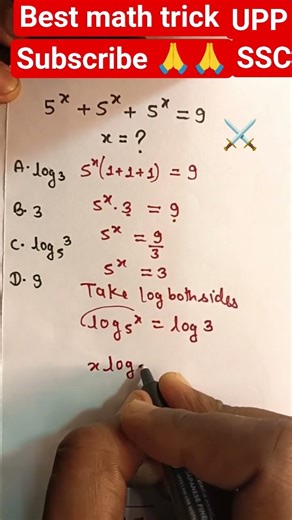 Best math trick UPP
Subscribe 🙏 🙏 SSC
5ˣ + 5ˣ + 5ˣ = 9
x = ?
A. log3
B. 3
C. log₅³
D. 9
5ˣ(1+1+1) = 9
5ˣ. 3 = 9
5ˣ = 9/3
5ˣ = 3
Take log both sides
log5ˣ = log3
x log